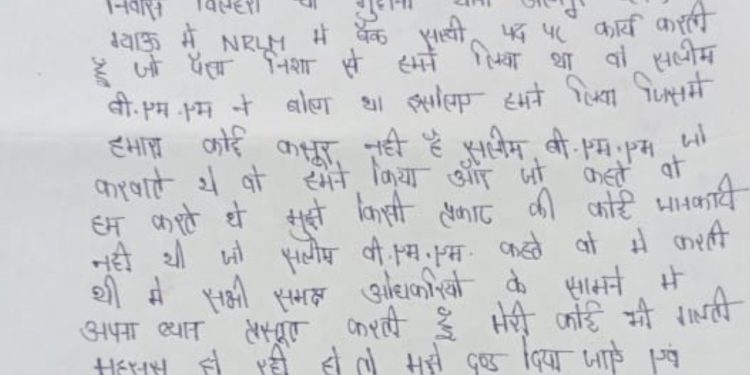 निवासी
म्याऊ मे NRLM मे बैंक सखी पद पर कार्य करती
हूँ जो पैसा निशा से हमने लिया था वो सलीम
बी.एम.एम ने बोला था इसलिए हमने लिया जिसमे
हमारा कोई कसूर नही है सलीम बी.एम.एम जो
करवाते थे वो हमने किया और जो कहते वो
हम करते थे मुझे किसी प्रकार की कोई जानकारी
नही थी जो सलीम बी.एम.एम. कहते वो मे करती
थी मे सभी समक्ष अधिकारियो के सामने मे
अपना ब्यान प्रस्तुत करती हूँ मेरी कोई भी गलती
महसूस हो रही हो तो मुझे दण्ड दिया जाऐ एवं